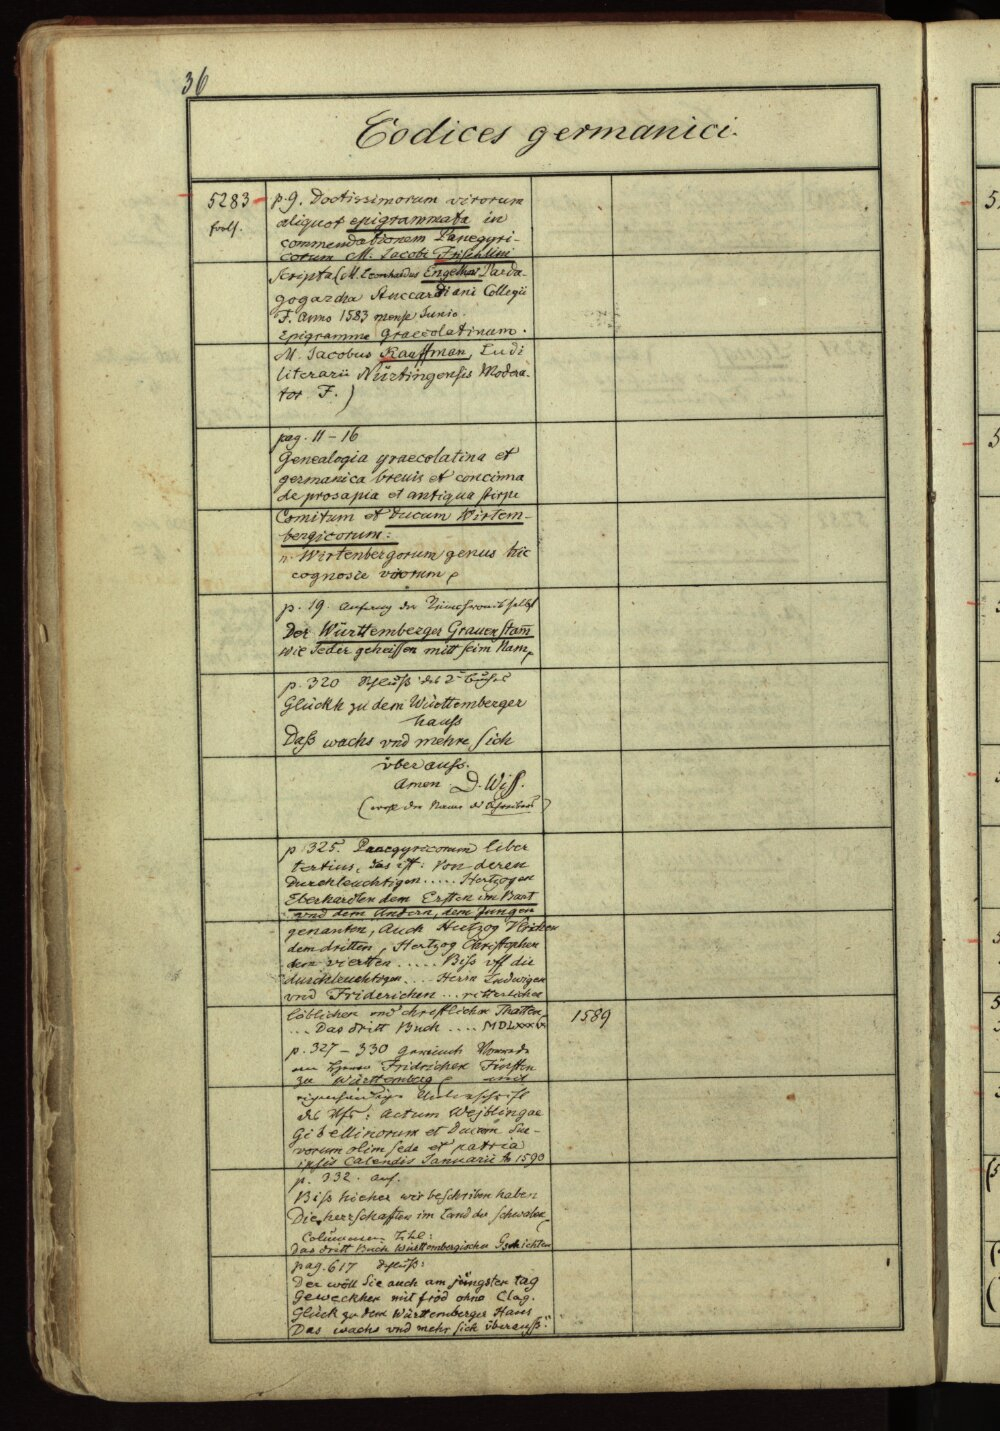 36
Codices germanici.
5283
forts.
p. 9. Doctissimorum virorum
aliquot epigrammata in
commendationem Panegyri-
corum M. Jacobi Frischlini
Scripta (M. Leonhardus Engelhart Paeda-
gogarcha Stuccardiani Collegii
F. Anno 1583 mense Junio.
Epigramma graecolatinum.
M. Jacobus Kauffman, Ludi
literarii Nürtingensis Modera-
tor F.)
pag. 11 – 16
Genealogia graecolatina et
germanica brevis et concinna
de prosapia et antiqua stirpe
Comitum et Ducum Wirtem-
bergicorum:
"Wirtenbergorum genus hic
cognosce virorum
p. 19. Anfang der Reimchronik selbst
Der Württemberger Grauen Stam̄
wie Jeder geheissen mitt seim Nam
p. 320 Schluß des 2. Buches
Glückh zu dem Württemberger
hauss
Dass wachs vnd mehre sich
überauss.
Amen. D. Wiss.
(wol der Name des Schreibers)
p. 325. Panegyricorum liber
tertius, das ist: Von deren
Durchleuchtigen ..... Hertzogen
Eberhardten dem Ersten im Bart
vnd dem Andern, dem Jungen
genanten, Auch Hertzog Vlrichen
dem dritten, Hertzog Christophen
dem vierten ..... Biss vff die
durchleuchtigen .... Herrn Ludwigen
vnd Friderichen ... ritterlichen
löblichen vnd christlichen Thatten
... Das dritt Buch .... MDLXXXIX
1589
p. 327 – 330 gereimte Vorrede
an Herrn Fridrichen Fürsten
zu Württemberg und
eigenhändige Unterschrift
des Vfs: Actum Wejblingae
Gibellinorum et Ducum Sue-
vorum olim sede et patria
ipsis Calendis Januarii Ao 1590
p. 332. Anf.
Biss hieher wir beschriben haben
Die herrschafften im Land der Schwaben
Columnen Titel:
Das dritt Buch Württembergischer Gschichten
pag. 617 Schluß:
Der wöll Sie auch am jüngsten tag
Geweckhen mit fröd ohne Clag.
Glück zu dem Württemberger Haus
Das wachs vnd mehr sich überauss."